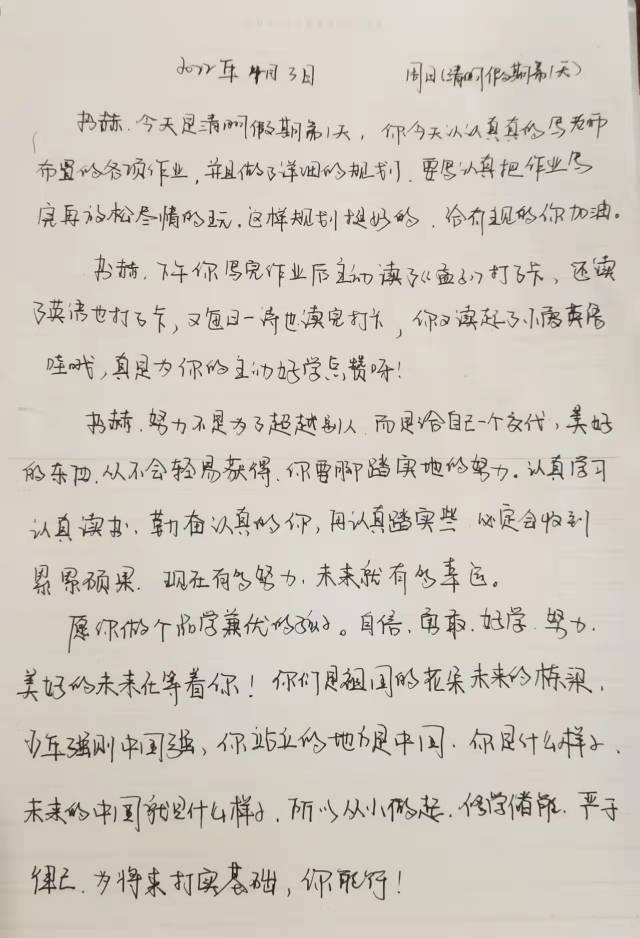 2022年4月3日 周日(清明假期第1天)
书赫.今天是清明假期第1天，你今天认认真真的写老师
布置的各项作业,并且做了详细的规划.要写认真把作业写
完再放松尽情的玩.这样规划挺好的.给有主现的你加油。
书赫.下午你写完作业后主动读了《孟子》打了卡，还读
了英语也打了卡,又每日一诗也读完打卡,你又读起了小鹰英语
哇哦,真是为你的主动好学点赞呀!
书赫.努力不是为了超越别人.而是给自己一个交代,美好
的东西.从不会轻易获得.你要脚踏实地的努力。认真学习
认真读书.勤奋认真的你,再认真踏实些 必定会收到
累累硕果.现在有多努力.未来就有多幸运。
愿你做个品学兼优的孩子。自信.勇敢.好学.努力.
美好的未来在等着你!你们是祖国的花朵未来的栋梁.
少年强则中国强,你站立的地方是中国.你是什么样子.
未来的中国就是什么样子.所以从小做起.修学储能.严于
律己.为将来打实基础,你能行!